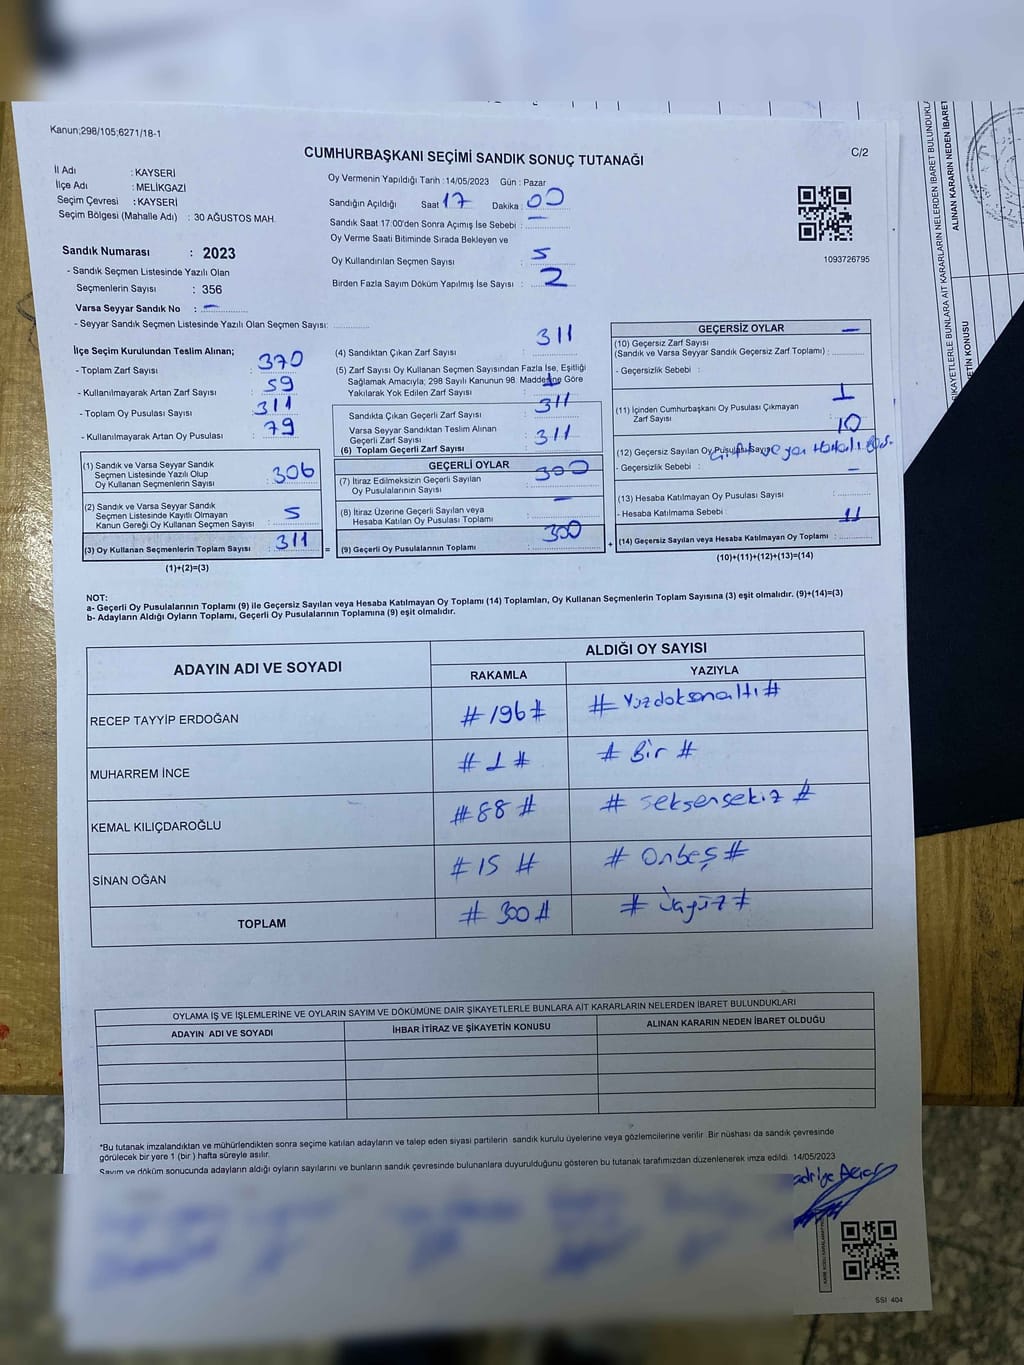 Kanun;298/105;6271/18-1
CUMHURBAŞKANI SEÇİMİ SANDIK SONUÇ TUTANAĞI
C/2
İl Adı : KAYSERİ
İlçe Adı : MELİKGAZİ
Seçim Çevresi : KAYSERİ
Seçim Bölgesi (Mahalle Adı) : 30 AĞUSTOS MAH.
Sandık Numarası : 2023
- Sandık Seçmen Listesinde Yazılı Olan
Seçmenlerin Sayısı : 356
Varsa Seyyar Sandık No : -
- Seyyar Sandık Seçmen Listesinde Yazılı Olan Seçmen Sayısı:
Oy Vermenin Yapıldığı Tarih :14/05/2023 Gün : Pazar
Sandığın Açıldığı Saat 17 Dakika : 00
Sandık Saat 17:00'den Sonra Açımış İse Sebebi : -
Oy Verme Saati Bitiminde Sırada Bekleyen ve
Oy Kullandırılan Seçmen Sayısı : 5
Birden Fazla Sayım Döküm Yapılmış İse Sayısı : 2
1093726795
İlçe Seçim Kurulundan Teslim Alınan;
- Toplam Zarf Sayısı : 370
- Kullanılmayarak Artan Zarf Sayısı : 59
- Toplam Oy Pusulası Sayısı : 311
- Kullanılmayarak Artan Oy Pusulası : 79
(1) Sandık ve Varsa Seyyar Sandık
Seçmen Listesinde Yazılı Olup
Oy Kullanan Seçmenlerin Sayısı : 306
(2) Sandık ve Varsa Seyyar Sandık
Seçmen Listesinde Kayıtlı Olmayan
Kanun Gereği Oy Kullanan Seçmen Sayısı : 5
(3) Oy Kullanan Seçmenlerin Toplam Sayısı : 311
(1)+(2)=(3)
(4) Sandıktan Çıkan Zarf Sayısı : 311
(5) Zarf Sayısı Oy Kullanan Seçmen Sayısından Fazla İse, Eşitliği
Sağlamak Amacıyla; 298 Sayılı Kanunun 98. Maddesine Göre
Yakılarak Yok Edilen Zarf Sayısı :
Sandıkta Çıkan Geçerli Zarf Sayısı : 311
Varsa Seyyar Sandıktan Teslim Alınan
Geçerli Zarf Sayısı
(6) Toplam Geçerli Zarf Sayısı : 311
GEÇERLİ OYLAR
(7) İtiraz Edilmeksizin Geçerli Sayılan
Oy Pusulalarının Sayısı : 300
(8) İtiraz Üzerine Geçerli Sayılan veya
Hesaba Katılan Oy Pusulası Toplamı : -
(9) Geçerli Oy Pusulalarının Toplamı : 300
GEÇERSİZ OYLAR
(10) Geçersiz Zarf Sayısı -
(Sandık ve Varsa Seyyar Sandık Geçersiz Zarf Toplamı) :
- Geçersizlik Sebebi :
(11) İçinden Cumhurbaşkanı Oy Pusulası Çıkmayan
Zarf Sayısı : 1
(12) Geçersiz Sayılan Oy Pusulası Sayısı 10
- Geçersizlik Sebebi :
(13) Hesaba Katılmayan Oy Pusulası Sayısı : -
- Hesaba Katılmama Sebebi :
(14) Geçersiz Sayılan veya Hesaba Katılmayan Oy Toplamı : 11
(10)+(11)+(12)+(13)=(14)
NOT:
a- Geçerli Oy Pusulalarının Toplamı (9) ile Geçersiz Sayılan veya Hesaba Katılmayan Oy Toplamı (14) Toplamları, Oy Kullanan Seçmenlerin Toplam Sayısına (3) eşit olmalıdır. (9)+(14)=(3)
b- Adayların Aldığı Oyların Toplamı, Geçerli Oy Pusulalarının Toplamına (9) eşit olmalıdır.
ADAYIN ADI VE SOYADI
ALDIĞI OY SAYISI
RAKAMLA YAZIYLA
RECEP TAYYİP ERDOĞAN #196# # Yüzdoksanaltı #
MUHARREM İNCE # 1 # # Bir #
KEMAL KILIÇDAROĞLU #88 # # seksensekiz #
SİNAN OĞAN # 15 # # Onbeş #
TOPLAM # 300 # # üçyüz #
OYLAMA İŞ VE İŞLEMLERİNE VE OYLARIN SAYIM VE DÖKÜMÜNE DAİR ŞİKAYETLERLE BUNLARA AİT KARARLARIN NELERDEN İBARET BULUNDUKLARI
ADAYIN ADI VE SOYADI İHBAR İTİRAZ VE ŞİKAYETİN KONUSU ALINAN KARARIN NEDEN İBARET OLDUĞU
*Bu tutanak imzalandıktan ve mühürlendikten sonra seçime katılan adayların ve talep eden siyasi partilerin sandık kurulu üyelerine veya gözlemcilerine verilir. Bir nüshası da sandık çevresinde
görülecek bir yere 1 (bir ) hafta süreyle asılır.
Sayım ve döküm sonucunda adayların aldığı oyların sayılarını ve bunların sandık çevresinde bulunanlara duyurulduğunu gösteren bu tutanak tarafımızdan düzenlenerek imza edildi. 14/05/2023
SSI 404
ALINAN KARARIN NEDEN İBARET